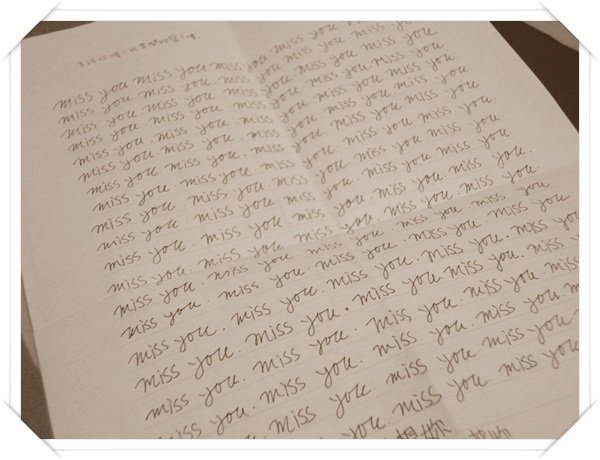 miss you miss you miss you miss you. miss you
miss you miss you. miss you miss you miss you
miss you miss you miss you miss you miss you
miss you miss you miss you miss you miss you
miss you. miss you. miss you miss you miss you
miss you miss you. miss you miss you miss you
miss you. miss you. miss you miss you miss you
miss you miss you miss you miss you miss you
miss you miss you miss you miss you miss you
miss you miss you miss you miss you miss you
miss you. miss you miss you. miss you miss you.
miss you. miss you miss you miss you. miss you
miss you. miss you miss you miss you miss you
miss you. miss you. miss you. miss you miss you
miss you. miss you. miss you. miss you. miss you
miss you. miss you. miss you miss you. miss you
miss you. miss you. miss you. miss you miss you.
miss you. miss you. miss you. miss you
miss you. miss you miss you
miss you. miss you
想你 想你